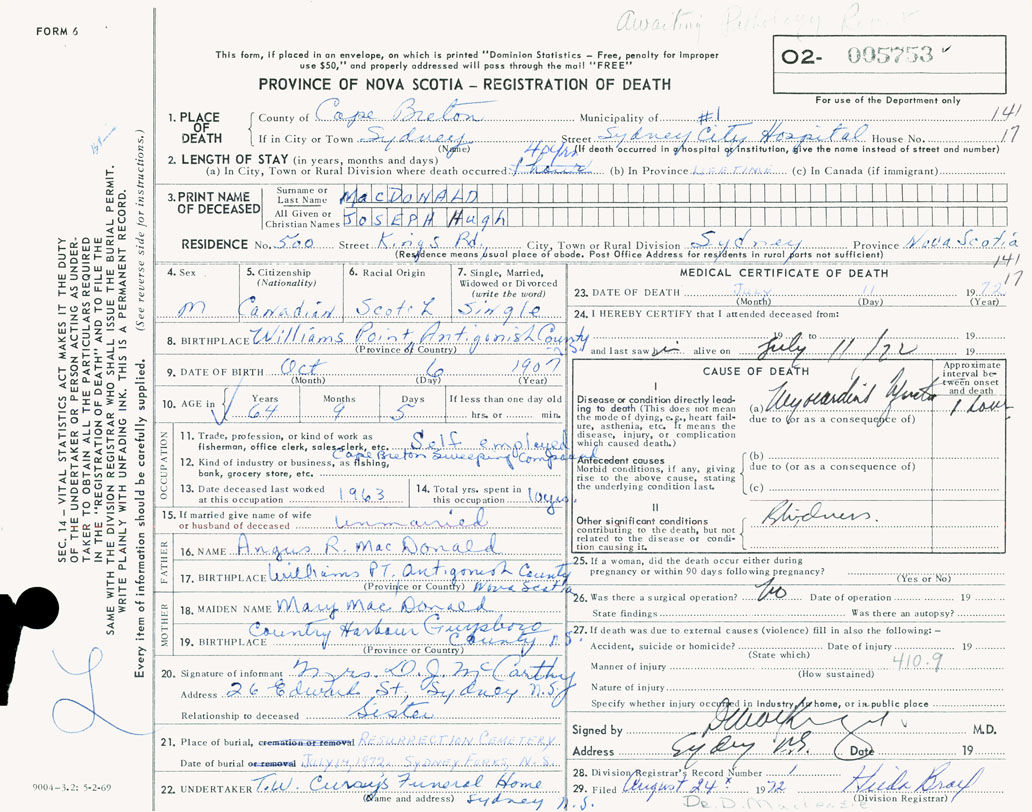 Awaiting Pathology Report
FORM 6
This form, if placed in an envelope, on which is printed "Dominion Statistics – Free, penalty for improper
use $50," and properly addressed will pass through the mail "FREE"
O2- 005753
For use of the Department only
PROVINCE OF NOVA SCOTIA – REGISTRATION OF DEATH
1. PLACE OF DEATH County of Cape Breton Municipality of #1 141
If in City or Town Sydney Street Sydney City Hospital House No. 17
(Name) (If death occurred in a hospital or institution, give the name instead of street and number)
2. LENGTH OF STAY (in years, months and days) 40 yrs
(a) In City, Town or Rural Division where death occurred 1 hour (b) In Province LIFETIME (c) In Canada (if immigrant)
3. PRINT NAME OF DECEASED Surname or Last Name MacDONALD
All Given or Christian Names JOSEPH Hugh
RESIDENCE No. 500 Street Kings Rd. City, Town or Rural Division Sydney Province Nova Scotia
(Residence means usual place of abode. Post Office Address for residents in rural parts not sufficient)
141
17
4. Sex 5. Citizenship (Nationality) 6. Racial Origin 7. Single, Married, Widowed or Divorced (write the word)
M Canadian Scotch Single
8. BIRTHPLACE Williams Point Antigonish County N.S.
(Province or Country)
9. DATE OF BIRTH Oct 6 1907
(Month) (Day) (Year)
10. AGE in Years Months Days If less than one day old
64 9 5 hrs. or min.
OCCUPATION
11. Trade, profession, or kind of work as
fisherman, office clerk, sales-clerk, etc. Self employed
Cape Breton Sweeping Compound
12. Kind of industry or business, as fishing,
bank, grocery store, etc.
13. Date deceased last worked at this occupation 1963
14. Total yrs. spent in this occupation 10 yrs.
15. If married give name of wife
or husband of deceased unmarried
FATHER
16. NAME Angus R. Mac Donald
17. BIRTHPLACE Williams PT. Antigonish County
(Province or Country) Nova Scotia
MOTHER
18. MAIDEN NAME Mary Mac Donald
19. BIRTHPLACE Country Harbour Guysboro County N.S.
(Province or Country)
20. Signature of informant Mrs. D.J. McCarthy
Address 26 Edward St, Sydney N.S.
Relationship to deceased Sister
21. Place of burial, cremation or removal RESURRECTION CEMETERY
Date of burial or removal JULY 14, 1972. SYDNEY FORKS, N.S.
22. UNDERTAKER T.W. Curry's Funeral Home
(Name and address) Sydney N.S.
MEDICAL CERTIFICATE OF DEATH
23. DATE OF DEATH JULY 11 1972
(Month) (Day) (Year)
24. I HEREBY CERTIFY that I attended deceased from:
19 to 19
and last saw him alive on July 11/72 19
CAUSE OF DEATH
Approximate interval between onset and death
I
Disease or condition directly leading to death (This does not mean the mode of dying, e.g., heart failure, asthenia, etc. It means the disease, injury, or complication which caused death.)
(a) Myocardial Infarct 1 hour
due to (or as a consequence of)
Antecedent causes
Morbid conditions, if any, giving rise to the above cause, stating the underlying condition last.
(b)
due to (or as a consequence of)
(c)
II
Other significant conditions contributing to the death, but not related to the disease or condition causing it.
Blindness.
25. If a woman, did the death occur either during
pregnancy or within 90 days following pregnancy?
(Yes or No)
26. Was there a surgical operation? No Date of operation 19
State findings Was there an autopsy?
27. If death was due to external causes (violence) fill in also the following: –
Accident, suicide or homicide? Date of injury 19
(State which)
Manner of injury 410.9
(How sustained)
Nature of injury
Specify whether injury occurred in industry, home, or in public place
Signed by M.D.
Address Sydney N.S. Date 19
28. Division Registrar's Record Number
29. Filed August 24th 1972 Hilda
(Division Registrar)
Dr. D.
SEC. 14 – VITAL STATISTICS ACT MAKES IT THE DUTY
OF THE UNDERTAKER OR PERSON ACTING AS UNDER-
TAKER TO OBTAIN ALL THE PARTICULARS REQUIRED
IN THE "REGISTRATION OF DEATH" AND TO FILE THE
SAME WITH THE DIVISION REGISTRAR WHO SHALL ISSUE THE BURIAL PERMIT.
WRITE PLAINLY WITH UNFADING INK. THIS IS A PERMANENT RECORD.
Every item of information should be carefully supplied. (See reverse side for instructions.)
9004-3.2: 5-2-69